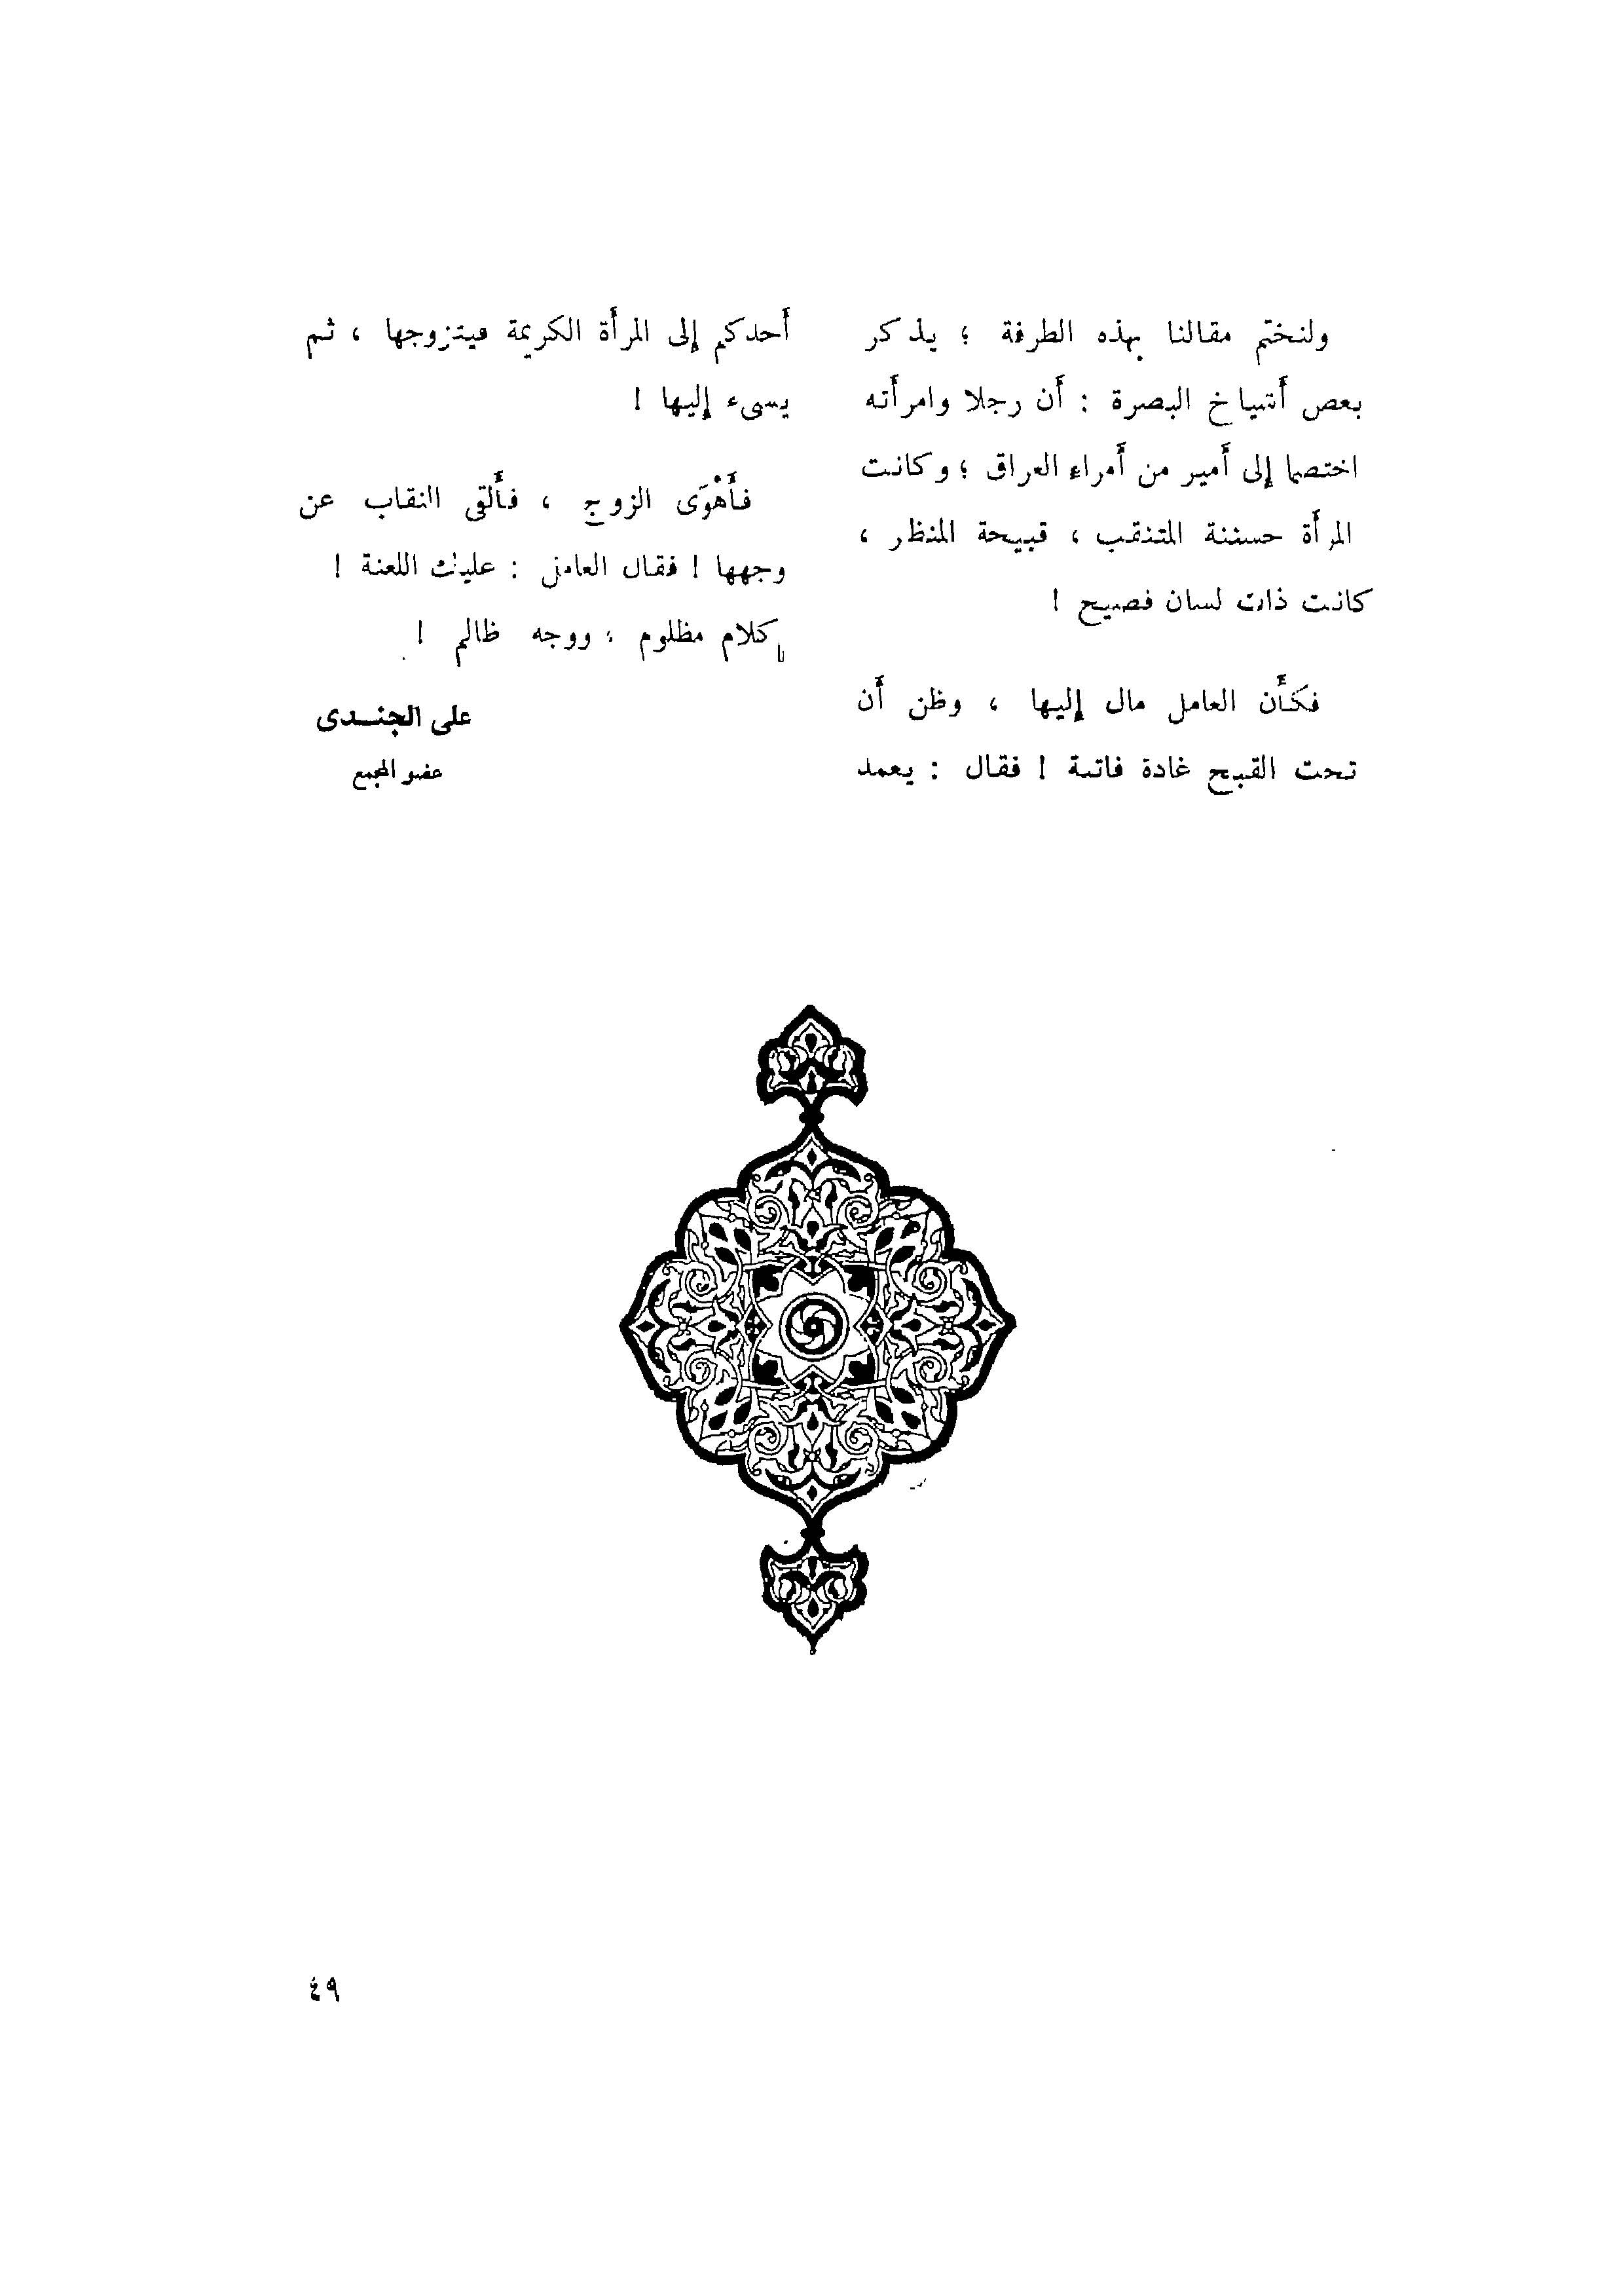 ولنختم مقالنا بهذه الطرفة ؛ يذكر
بعض أشياخ البصرة : أن رجلا وامرأته
اختصما إلى أمير من أمراء العراق ؛ وكانت
المرأة حسنة المتنقب ، قبيحة المنظر ،
كانت ذات لسان فصيح !
فكأن العامل مال إليها ، وظن أن
تحت القبح غادة فاتنة ! فقال : يعمد
أحدكم إلى المرأة الكريمة فيتزوجها ، ثم
يسىء إليها !
فأَهْوَى الزوج ، فألقى النقاب عن
وجهها ! فقال العامل : عليك اللعنة !
كلام مظلوم ، ووجه ظالم !
على الجنـدى
عضو المجمع
٤٩